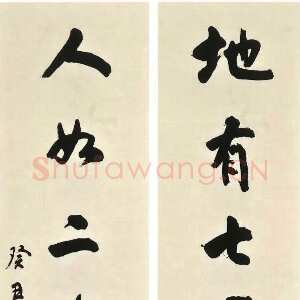 地有七
人如二
癸丑
Shufawang.CN